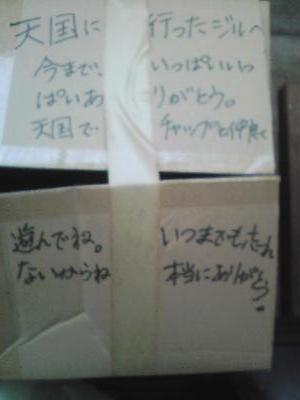 天国に行ったジルへ
今まで、いっぱいいっ
ぱいありがとう。
天国でチャップと仲良く
遊んでね。いつまでもわすれ
ないからね本当にありがとう。